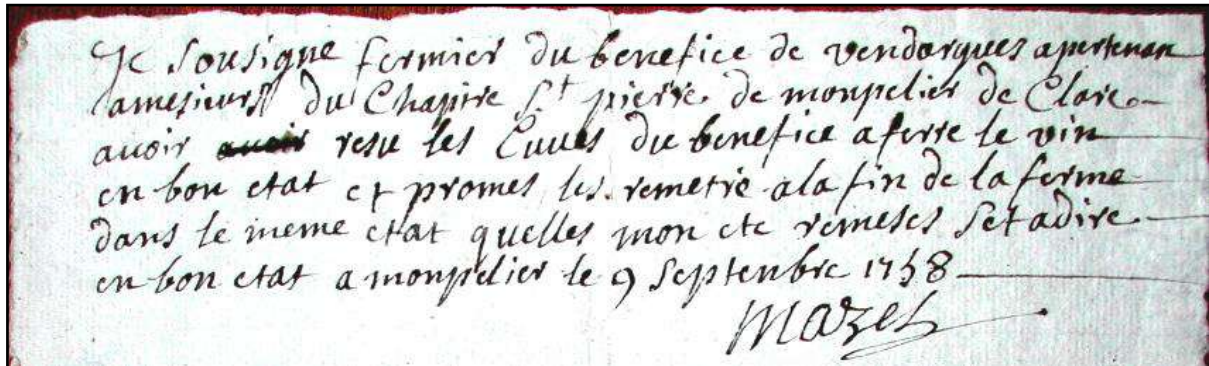 Je sousigne fermier du benefice de vendargues apertenan
amesieurs du Chapitre St pierre de monpelier de Clare
avoir avoir resu les Cuves du benefice a ferre le vin
en bon etat et promes les remetre ala fin de la ferme
dans le meme etat quelles mon ete remeses Setadire
en bon etat a monpelier le 9 Septenbre 1758
Mazel